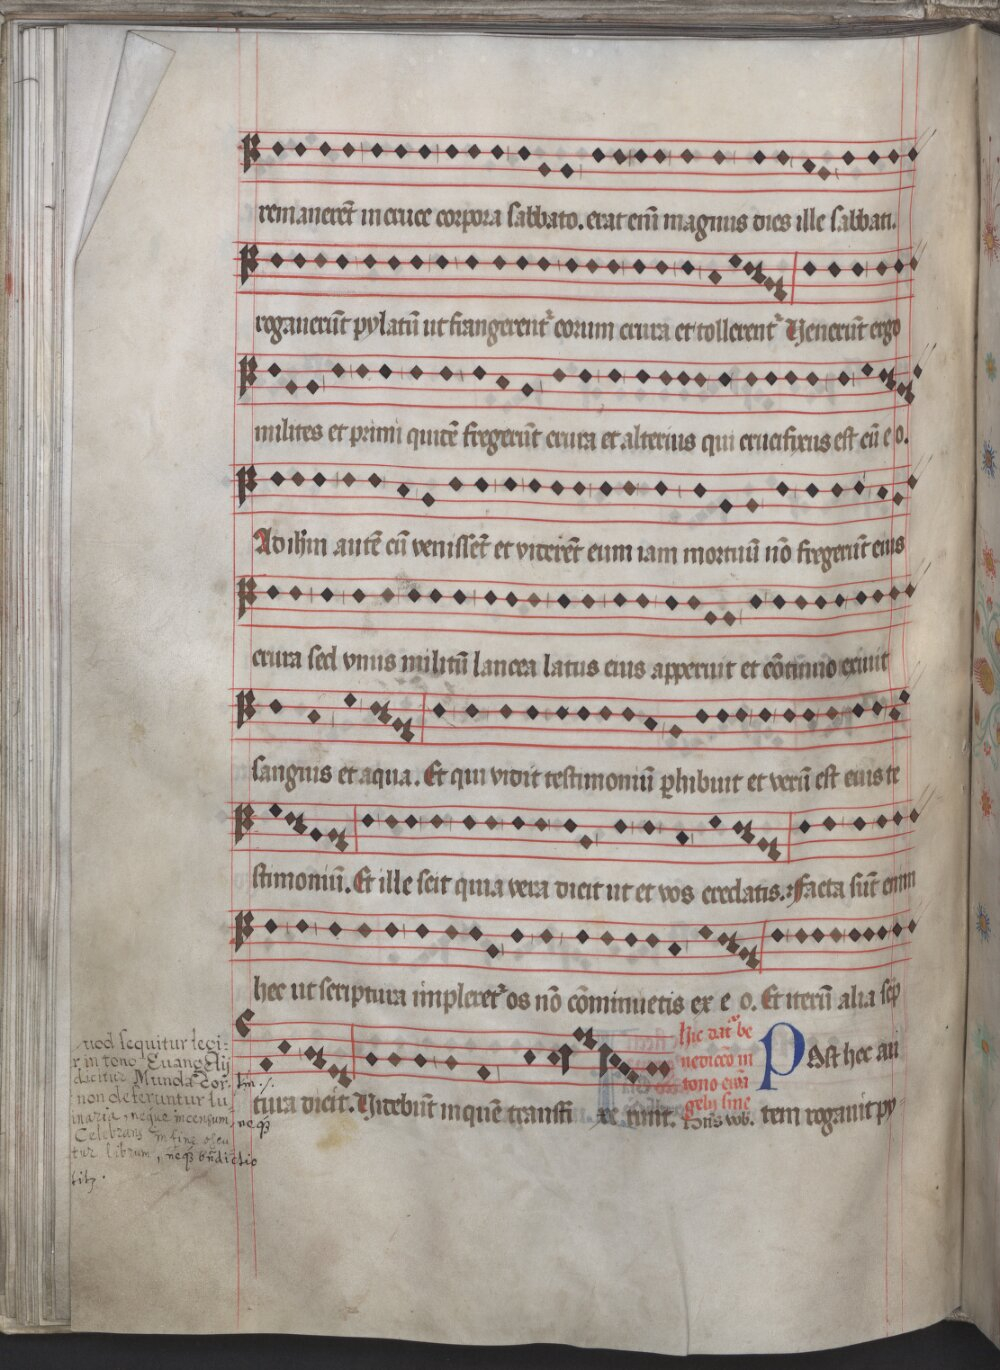 remanerēt in cruce corpora sabbato. erat enī magnus dies ille sabbati.
rogauerūt pylatū ut frangerent᷒ eorum crura et tollerent᷒ Venerūt ergo
milites et primi quidē fregerūt crura et alterius qui crucifixus est cū eo.
Ad ihm autē cū venissēt et viderēt eum iam mortuū nō fregerūt eius
crura sed vnus militū lancea latus eius apperuit et cōtinuo exiuit
sanguis et aqua. Et qui vidit testimoniū ꝑhibuit et verū est eius te
stimoniū. Et ille scit quia vera dicit ut et vos credatis. Facta sūt enim
hec ut scriptura impleret᷒ os nō cōminuetis ex eo. Et iterū alia scͥp
tura dicit. Videbūt in quē transfi xe runt.
Hic dat᷒ be
nedicco in
tono euā
gelij sine
Dn̄s vob.
Post hec au
tem rogauit py
uod sequitur legi:
r in tono Euangelij
dicitur Munda cor:
non deferuntur lu:
inaria, neque incensum,
Celebrans in fine oscu
tur librum, neq̃ bn̄dictio